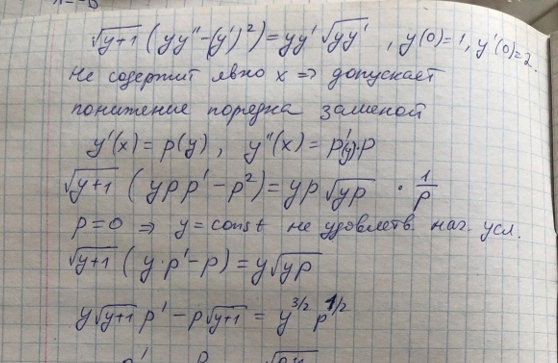 √(y+1) (yy''-(y')²) = yy' √(yy') , y(0)=1, y'(0)=2.
Не содержит явно x => допускает
понижение порядка заменой
y'(x) = p(y), y''(x) = p'(y)·p
√(y+1) (ypp' - p²) = yp √(yp) · 1/p
p=0 => y=const не удовлетв. нач. усл.
√(y+1) (y·p' - p) = y√(yp)
y√(y+1) p' - p√(y+1) = y^(3/2) p^(1/2)